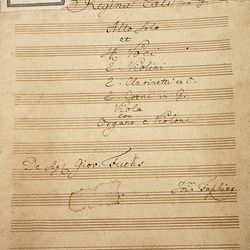 Regina Cæli in G
Alto Solo
et
4 Voci
2 Violini
2 Clarinetti ex C.
2 Corni in G.
Viola
con
Organo e Violone
De Sig. Giov. Fuchs